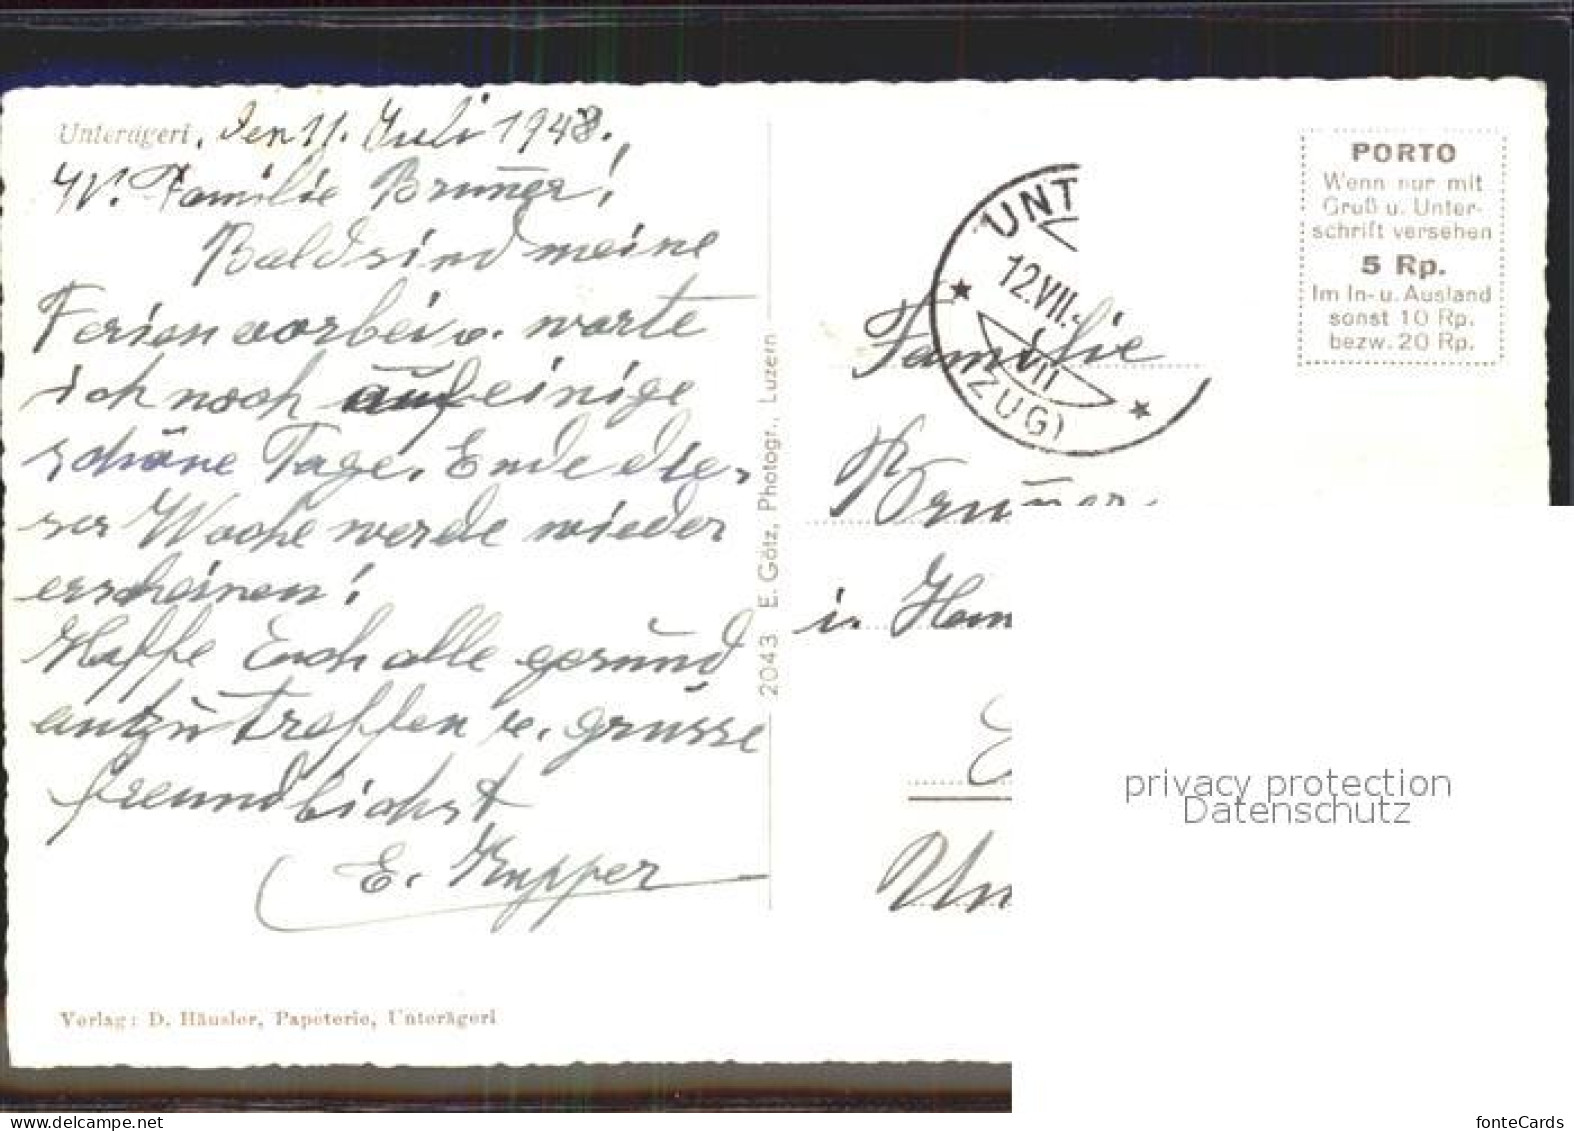 Unterägeri, den 11. Juli 1948.
W. Familie Brunner!
Bald sind meine
Ferien vorbei u. warte
ich noch auf einige
schöne Tage. Ende die-
ser Woche werde wieder
erscheinen!
Hoffe Euch alle gesund
anzutreffen u. grüsse
freundlichst
E. Kupper
Verlag: D. Häusler, Papeterie, Unterägeri
2043 E. Götz, Photogr., Luzern
UNT
12.VII.
VII
(ZUG)
PORTO
Wenn nur mit
Gruß u. Unter-
schrift versehen
5 Rp.
Im In- u. Ausland
sonst 10 Rp.
bezw. 20 Rp.
Familie
Brunner
i. Hom
Un
privacy protection
Datenschutz
fonteCards